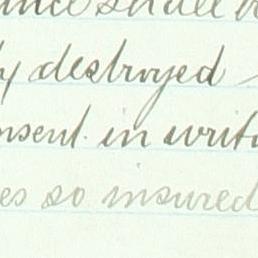 shall
y destroyed
nsent in writ
es so insured